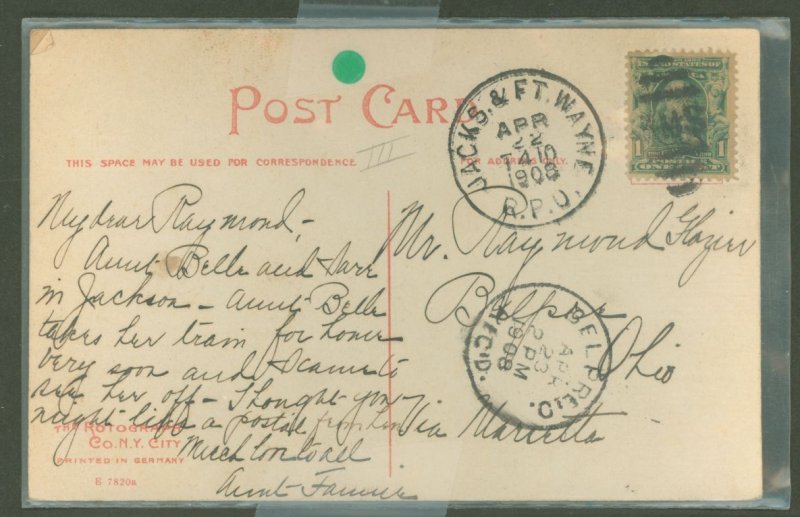 POST CARD
THIS SPACE MAY BE USED FOR CORRESPONDENCE.
FOR ADDRESS ONLY.
III
JACKS. & FT. WAYNE
APR
22
1908
R.P.O.
1 1
My dear Raymond,
Aunt Belle and I are
in Jackson – Aunt Belle
takes her train for home
very soon and I came to
see her off – I thought you
might like a postal from here
Much love to all
Aunt Fannie
Mr. Raymond Glazier
Belpre
Ohio
Via Marietta
BELPRE, O.
APR
23
PM
1908
REC'D.
THE ROTOGRAPH
CO. N.Y. CITY
PRINTED IN GERMANY
E 7820a